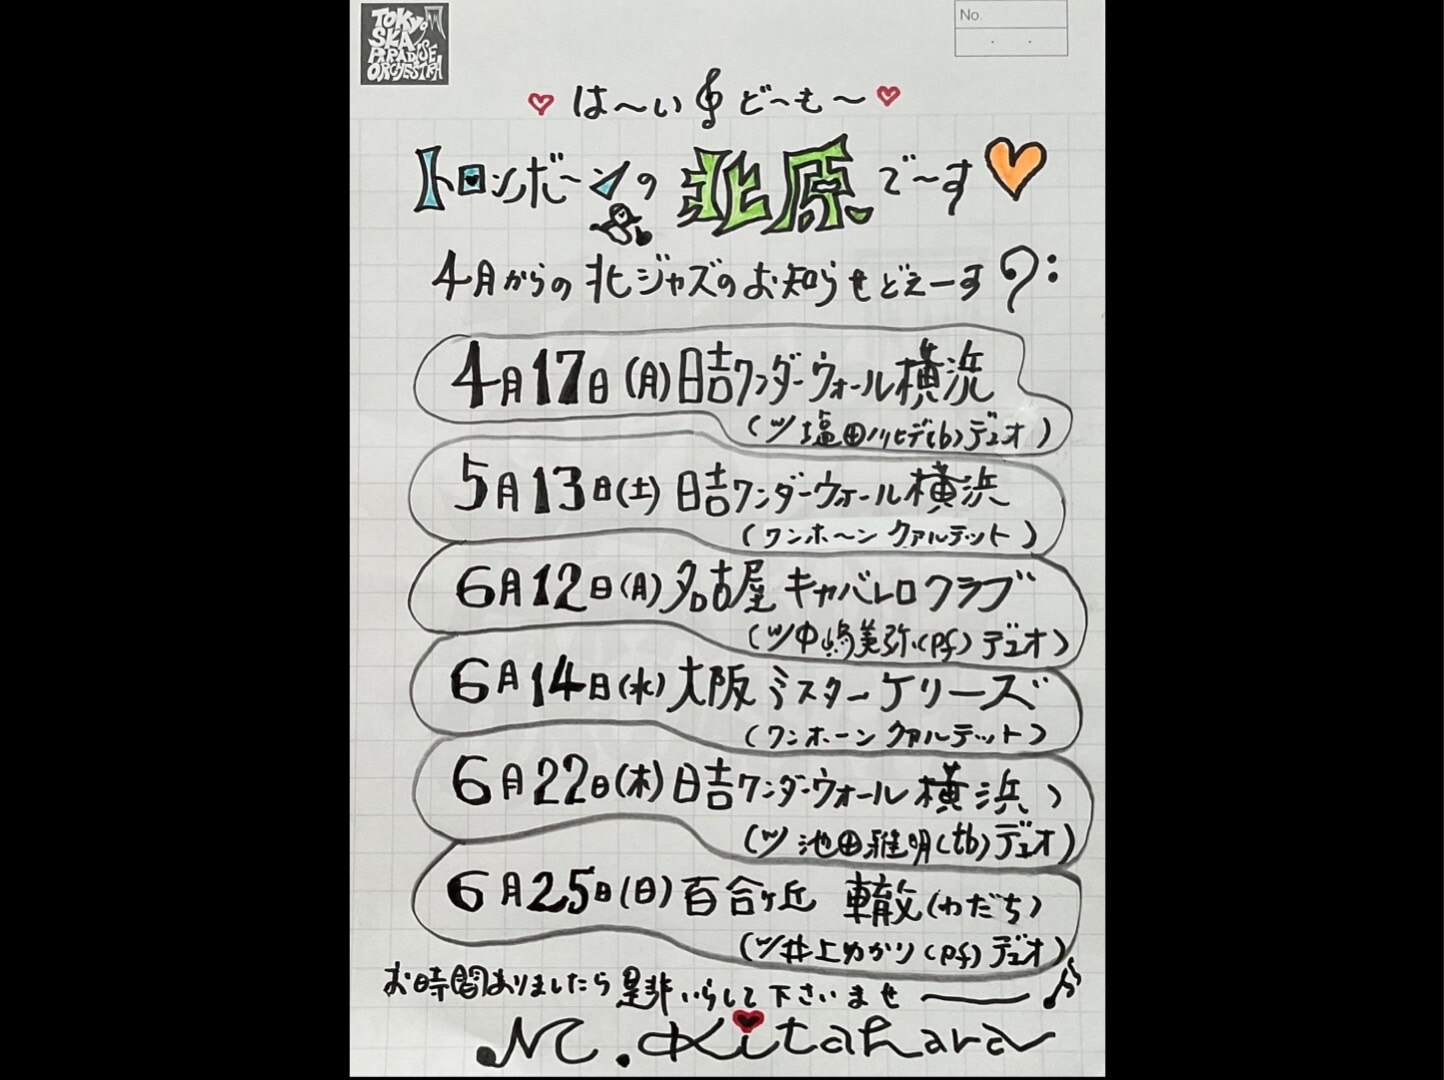 TOKYO
SKA
PARADISE
ORCHESTRA
No.
は〜い ど〜も〜
トロンボ〜ンの北原で〜す
4月からの北ジャズのお知らせどえーす
4月17日(月)日吉ワンダーウォール横浜
(w/塩田ノリヒデ(b)デュオ)
5月13日(土)日吉ワンダーウォール横浜
(ワンホ〜ン クァルテット)
6月12日(月)名古屋 キャバレロクラブ
(w/中嶋美弥(pf)デュオ)
6月14日(水)大阪 ミスターケリーズ
(ワンホーン クァルテット)
6月22日(木)日吉ワンダーウォール横浜
(w/池田雅明(tb)デュオ)
6月25日(日)百合ヶ丘 轍(わだち)
(w/井上ゆかり(pf)デュオ)
お時間ありましたら是非いらして下さいませ
M.Kitahara